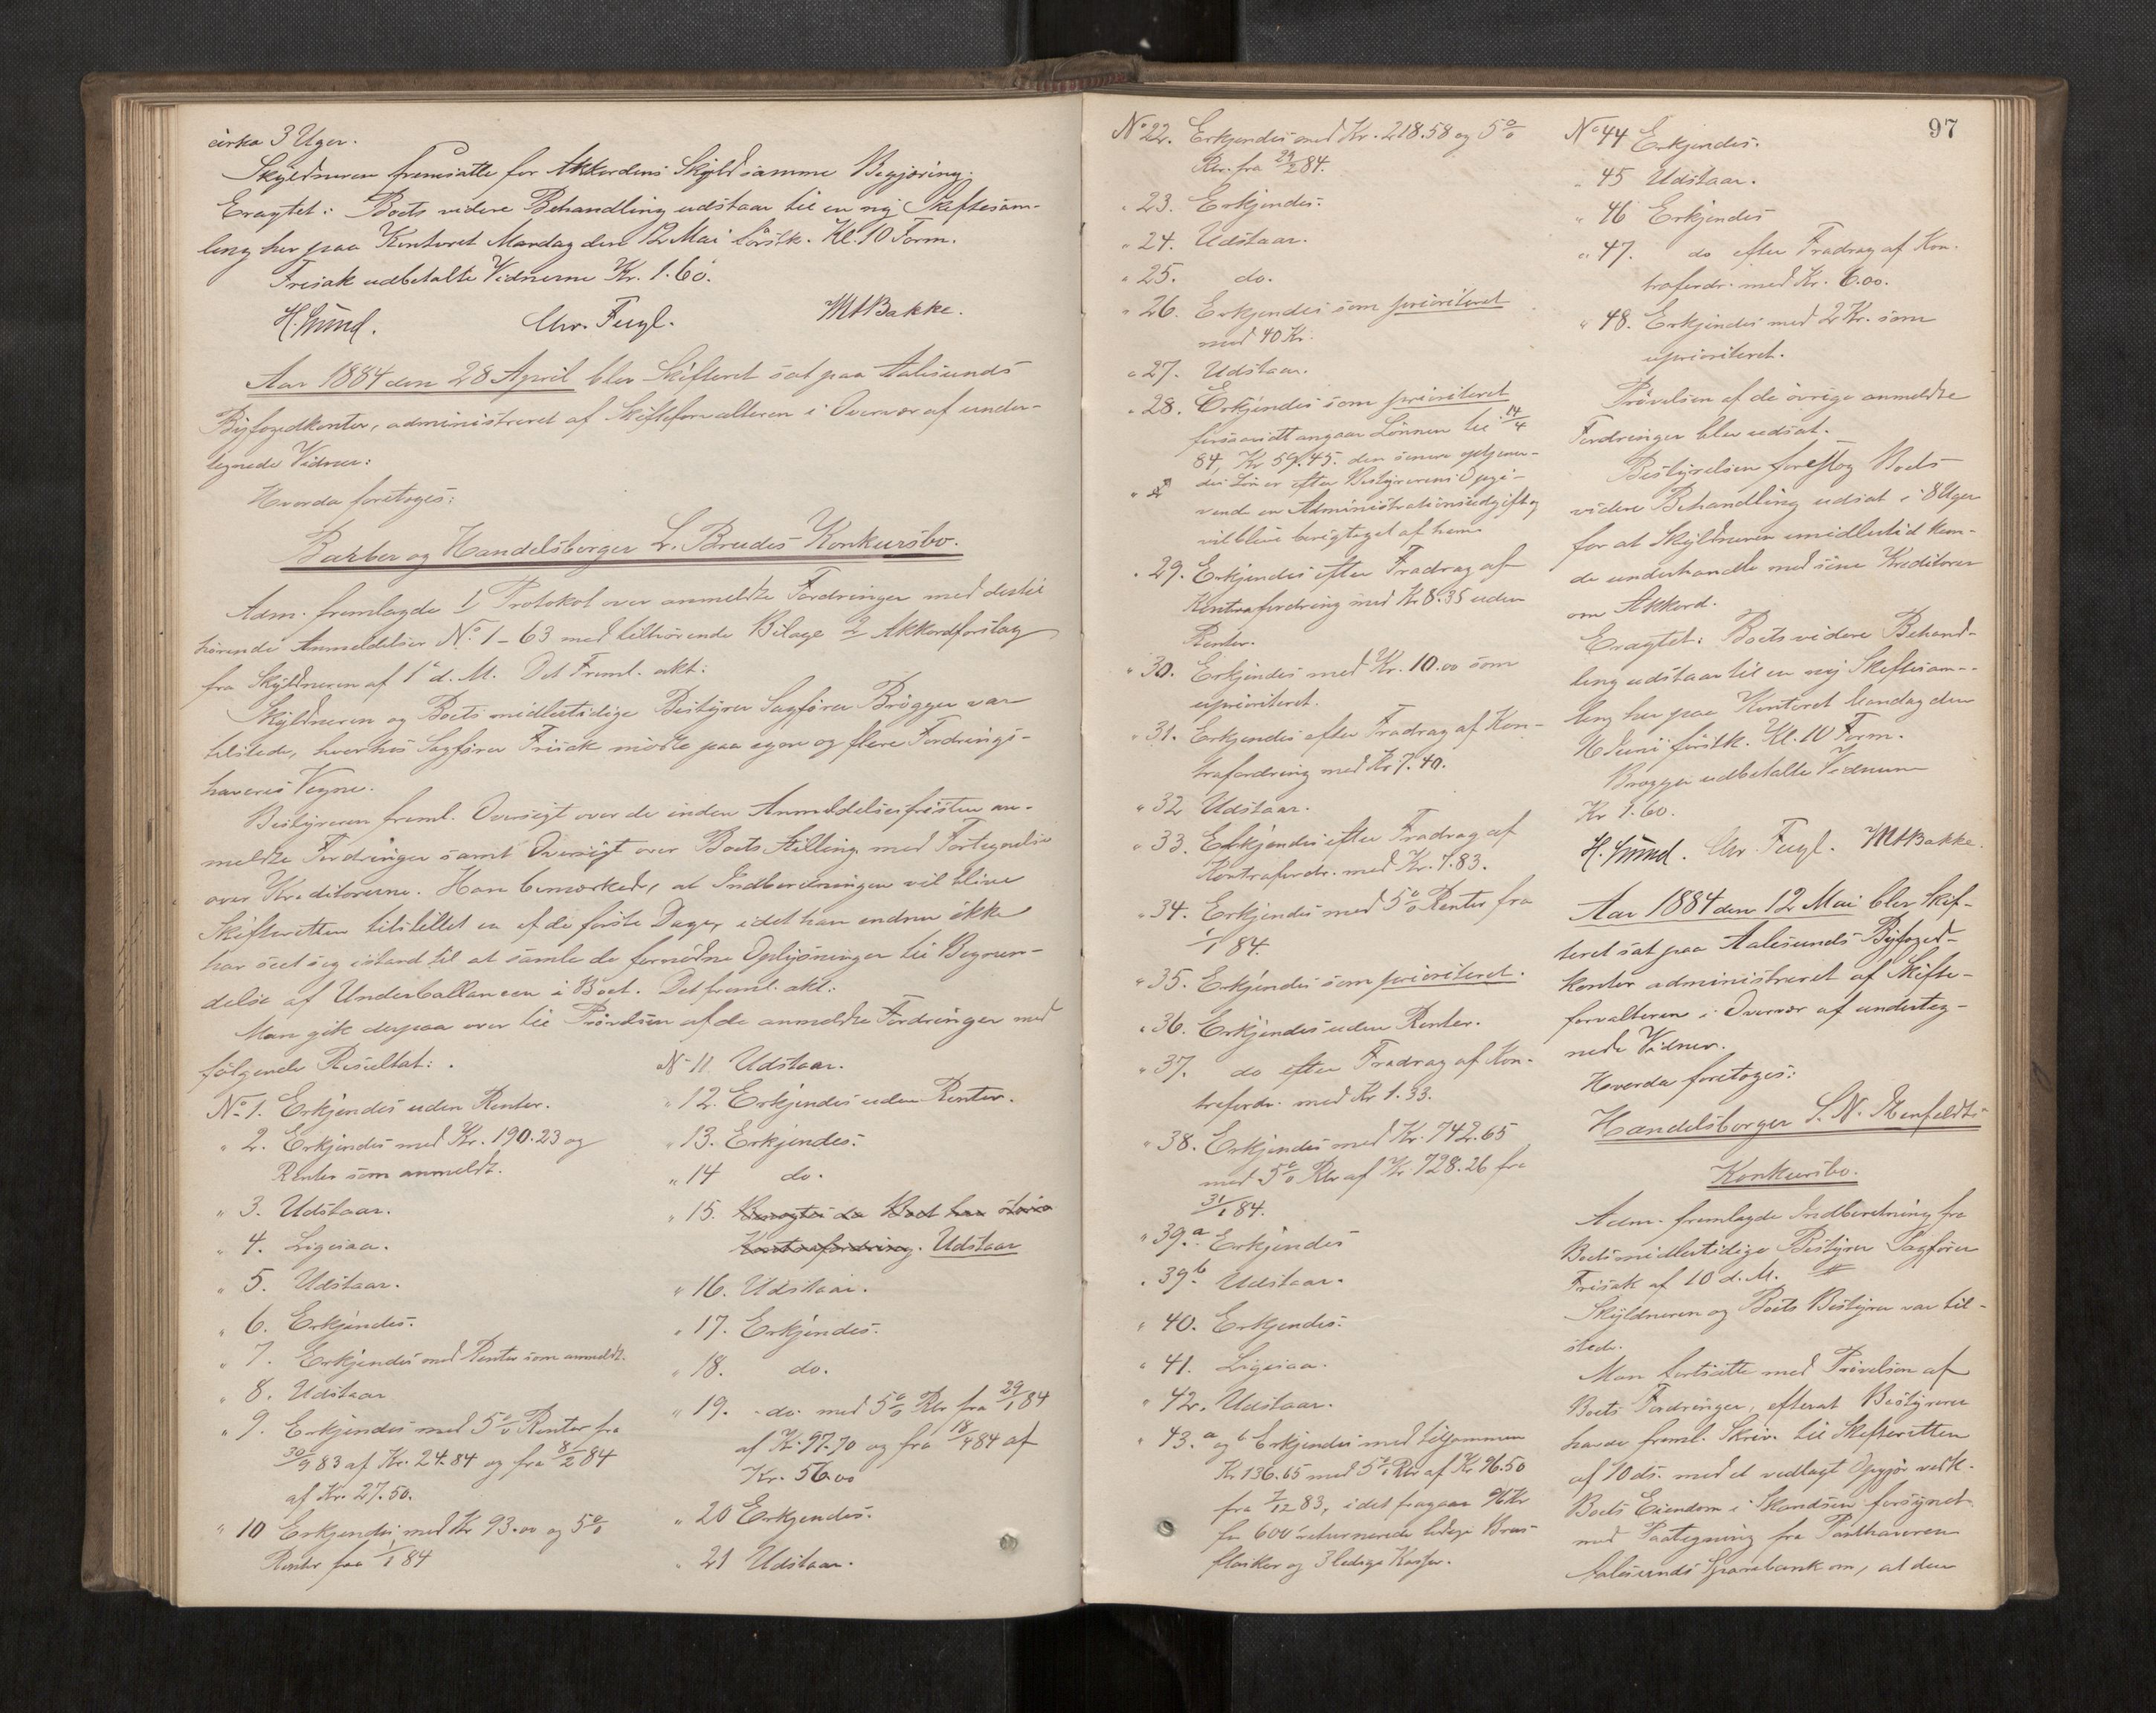 cirka 3 Uger.
Skyldneren fremsatte for Akkordens Skyld samme Begjæring.
Eragtet: Boets videre Behandling udstaar til en ny Skiftesam-
ling her paa Kontoret Mandag den 12 Mai förstk. Kl. 10 Form.
Frisak udbetalte Vidnerne Kr. 1.60.
Chr. Fugl. M Bakke.
Aar 1884 den 28 April blev Skifteret sat paa Aalesunds
Byfogedkontor, administreret af Skifteforvalteren i Overvær af under-
tegnede Vidner:
Hvorda foretoges:
Barber og Handelsborger L. Brudes Konkursbo.
Adm. fremlagde 1 Protokol over anmeldte Fordringer med dertil
hörende Anmeldelser No. 1-63 med tilhörende Bilage 2 Akkordforslag
fra Skyldneren af 1ste d. M. Det Freml. akt:
Skyldneren og Boets midlertidige Bestyrer Sagförer Brögger var
tilstede, hvorhos Sagförer Frisak mödte paa egne og flere Fordrings-
haveres Vegne.
Bestyreren freml. Oversigt over de inden Anmeldelsesfristen an-
meldte Fordringer samt Oversigt over Boets Stilling med Fortegnelse
over Kreditorerne. Han bemærkede, at Indberetningen vil blive
Skifteretten tilstillet en af de förste Dage, idet han endnu ikke
har seet sig istand til at samle de fornödne Oplysninger til Begrun-
delse af Underballancen i Boet. Det freml. akt:
Man gik derpaa over til Prövelsen af de anmeldte Fordringer med
fölgende Resultat:
No. 1. Erkjendes uden Renter.
" 2. Erkjendes med Kr. 190.23 og
Renter som anmeldt.
" 3. Udstaar.
" 4. Ligesaa.
" 5. Udstaar.
" 6. Erkjendes.
" 7. Erkjendes med Renter som anmeldt.
" 8. Udstaar
" 9. Erkjendes med 5% Renter fra
30/9 83 af Kr. 24.84 og fra 8/2 84
af Kr. 27.50.
" 10 Erkjendes med Kr 93.00 og 5%
Renter fra 1/1 84
No 11. Udstaar.
" 12. Erkjendes uden Renter.
" 13. Erkjendes.
" 14 do.
" 15. Benegtes da Boet har större
Kontrafordring. Udstaar
" 16. Udstaar.
" 17. Erkjendes.
" 18. do.
" 19. do. med 5% Rtr fra 29/1 84
af Kr. 97.70 og fra 18/4 84 af
Kr. 56.00
" 20 Erkjendes.
" 21 Udstaar.
97
No 22. Erkjendes med Kr. 218.58 og 5%
Rtr. fra 29/2 84.
" 23. Erkjendes.
" 24. Udstaar.
" 25. do.
" 26. Erkjendes som prioriteret
med 40 Kr.
" 27. Udstaar.
" 28. Erkjendes som prioriteret
forsaavidt angaar Lönnen til 14/4
84, Kr 59.45. den senere optjen-
des Lön er efter Bestyrerens Opgi-
vende en Administrationsudgift og
vil blive berigtiget af ham.
" 29. Erkjendes efter Fradrag af
Kontrafordring med Kr 8.35 uden
Renter.
" 30. Erkjendes med Kr. 10.00 som
uprioriteret.
" 31. Erkjendes efter Fradrag af Kon-
trafordring med Kr 7.40.
" 32 Udstaar.
" 33. Erkjendes efter Fradrag af
Kontrafordr. med Kr. 7.83.
" 34. Erkjendes med 5% Renter fra
1/1 84.
" 35. Erkjendes som prioriteret.
" 36. Erkjendes uden Renter.
" 37. do efter Fradrag af Kon-
trafordr. med Kr 1.33.
" 38. Erkjendes med Kr. 742.65
med 5% Rtr af Kr 728.26 fra
31/1 84.
" 39a. Erkjendes
" 39b. Udstaar.
" 40. Erkjendes.
" 41. Ligesaa.
" 42. Udstaar.
" 43. a og b Erkjendes med tilsammen
Kr 136.65 med 5% Rtr af Kr 96.50
fra 7/12 83, idet fragaar 96 Kr
for 600 returnerede ledige Brus-
flasker og 3 ledige Kasser.
No 44 Erkjendes.
" 45 Udstaar.
" 46 Erkjendes
" 47. do efter Fradrag af Kon-
trafordr. med Kr. 6.00.
" 48. Erkjendes med 2 Kr. som
uprioriteret.
Prövelsen af de övrige anmeldte
Fordringer blev udsat.
Bestyrelsen foreslog Boets
videre Behandling udsat i 8 Uger
for at Skyldneren imidlertid kun-
de underhandle med sine Kreditorer
om Akkord.
Eragtet: Boets videre Behand-
ling udstaar til en ny Skiftesam-
ling her paa Kontoret Mandag den
Juni förstk. Kl. 10 Form.
Brögger udbetalte Vidnerne
Kr 1.60.
Chr. Fugl. M Bakke.
Aar 1884 den 12 Mai blev Skif-
teret sat paa Aalesunds Byfoged-
kontor administreret af Skifte-
forvalteren i Overvær af underteg-
nede Vidner.
Hvorda foretoges:
Handelsborger S. N.
Konkursbo.
Adm. fremlagde Indberetning fra
Boets midlertidige Bestyrer Sagförer
Frisak af 10 d. M.
Skyldneren og Boets Bestyrer var til-
stede.
Man fortsatte med Prövelsen af
Boets Fordringer, efterat Bestyreren
havde freml. Skriv. til Skifteretten
af 10 ds. med et vedlagt Opgjör vedk.
Boets Eiendom i Skandsen forsynet
med Paategning fra Panthaveren
Aalesunds Sparebank om, at den